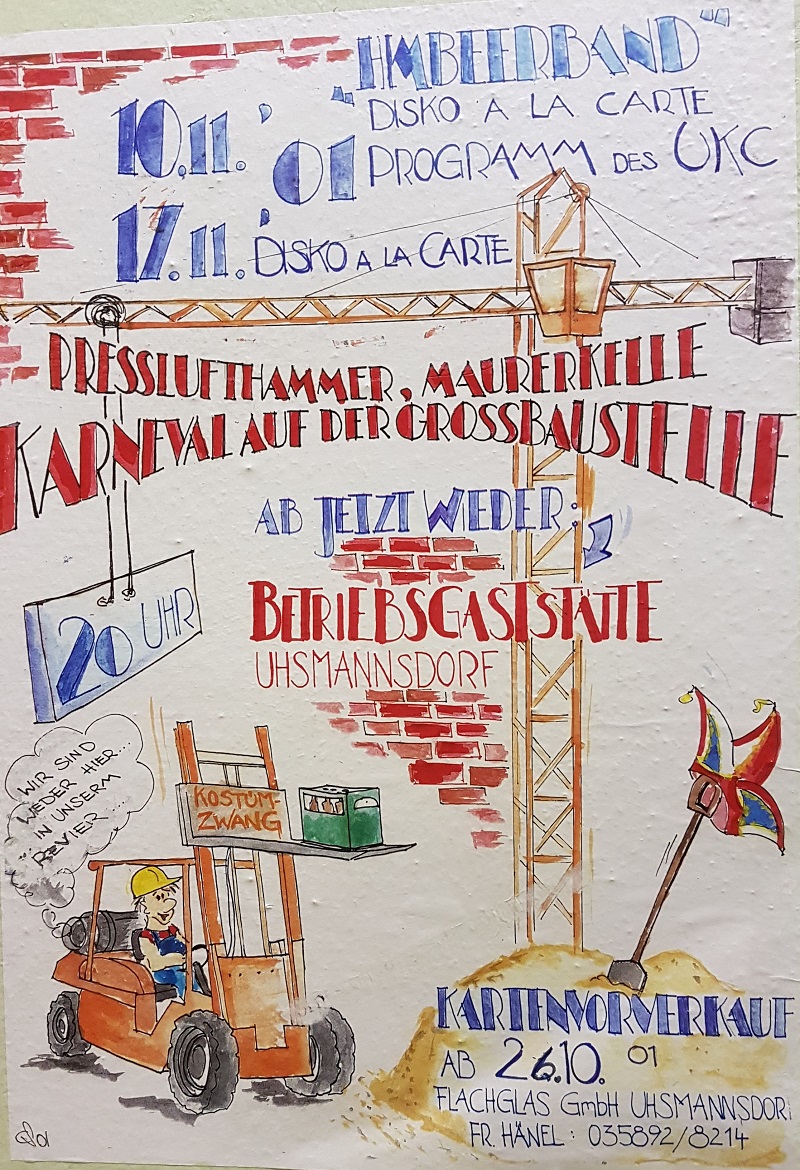 "HIMBEERBAND"
10.11. '01 DISKO A LA CARTE
PROGRAMM DES UKC
17.11. DISKO A LA CARTE
PRESSLUFTHAMMER, MAURERKELLE
KARNEVAL AUF DER GROSSBAUSTELLE
AB JETZT WEDER:
BETRIEBSGASTSTÄTTE
UHSMANNSDORF
20 UHR
WIR SIND
WEDER HIER...
IN UNSERM
REVIER...
KOSTÜM-
ZWANG
KARTENVORVERKAUF
AB 26.10. 01
FLACHGLAS GmbH UHSMANNSDORF
FR. HÄNEL: 035892/8214